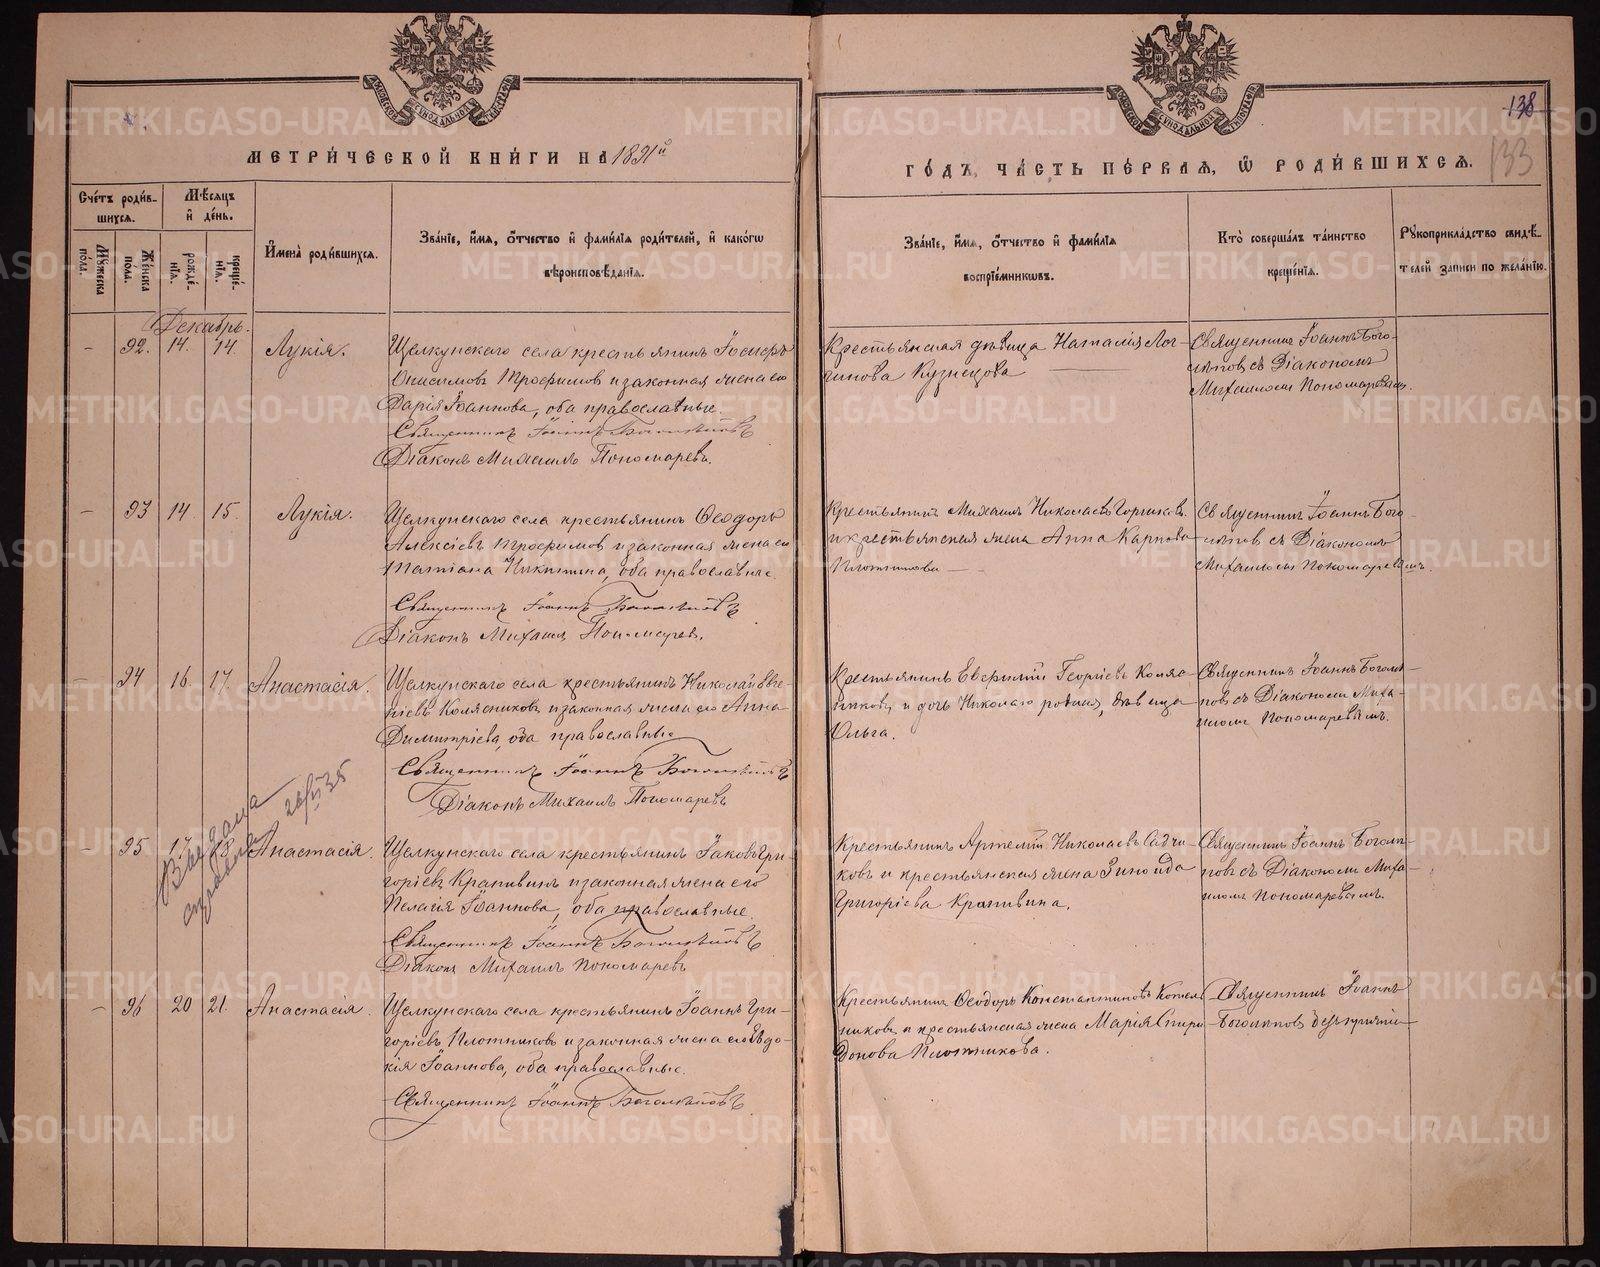 138
133
МЕТРИ́ЧЕСКОЙ КНИ́ГИ НА 1891й
ГО́ДЪ, ЧА́СТЬ ПЕ́РВАЯ, Ѽ РОДИ́ВШИХСѦ.
Сче́тъ роди́в-
шихся.
Мѣ́сяцъ
и҆ де́нь.
Мꙋжеска по́ла.
Же́нска по́ла.
рожде́-нїѧ.
креще́-нїѧ.
И҆мена̀ роди́вшихсѧ.
Зва́нїе, и҆́мѧ, ѻ҆́тчество и҆ фами́лїѧ роди́телей, и҆ како́гѡ
вѣроисповѣ́данїѧ.
Зва́нїе, и҆́мѧ, ѻ҆́тчество и҆ фами́лїѧ
воспрїе́мникѡвъ.
Кто̀ соверша́лъ та́инство
креще́нїѧ.
Рꙋкоприкла́дство свидѣ́-
телей за́писи по жела́нїю.
Декабрь.
- 92. 14. 14. Лукія.
Щелкунскаго села крестьянинъ Іосифъ
Онисимовъ Трофимов и законная жена его
Дарія Іоаннова, оба православные.
Священникъ Іоаннъ Боголѣповъ
Діаконъ Михаилъ Пономаревъ.
Крестьянская дѣвица Наталія Лог-
гинова Кузнецова
Священникъ Іоаннъ Бого-
лѣпов съ Діакономъ
Михаиломъ Пономаревымъ.
- 93 14 15. Лукія.
Щелкунскаго села крестьянинъ Ѳеодоръ
Алексіевъ Трофимов и законная жена его
Татіана Никитина, оба православные.
Священникъ Іоаннъ Боголѣповъ
Діаконъ Михаилъ Пономарев.
Крестьянинъ Михаилъ Николаевъ
и крестьянская жена Анна Карпова
Плотникова
Священникъ Іоаннъ Бого-
лѣпов съ Діакономъ
Михаиломъ Пономаревымъ.
- 94 16. 17. Анастасія.
Щелкунскаго села крестьянинъ Николай Евге-
ніевъ Колясников и законная жена его Анна
Димитріева, оба православные
Священникъ Іоаннъ Боголѣповъ
Діаконъ Михаилъ Пономаревъ
Крестьянинъ Евфимій Георгіевъ Коляс-
ников, и дочь Николаю родная, дѣвица
Ольга.
Священникъ Іоаннъ Боголѣ-
пов съ Діакономъ Миха-
иломъ Пономаревымъ.
Выдана
справка
- 95 17 18. Анастасія.
Щелкунскаго села крестьянинъ Іаковъ Гри-
горіевъ Крапивинъ и законная жена его
Пелагія Іоаннова, оба православные.
Священникъ Іоаннъ Боголѣповъ
Діаконъ Михаилъ Пономаревъ
Крестьянинъ Артемій Николаевъ Садчи-
ковъ и крестьянская жена Зинаида
Григоріева Крапивина.
Священникъ Іоаннъ Боголѣ-
повъ съ Діакономъ Миха-
иломъ Пономаревымъ.
- 96 20 21. Анастасія.
Щелкунскаго села крестьянинъ Іоаннъ Гри-
горіевъ Плотников и законная жена его Евдо-
кія Іоаннова, оба православные.
Священникъ Іоаннъ Боголѣповъ
Крестьянинъ Ѳеодоръ Константиновъ Котель-
ников, и крестьянская жена Марія Спири-
донова Плотникова.
Священникъ Іоаннъ
Боголѣпов
METRIKI.GASO-URAL.RU